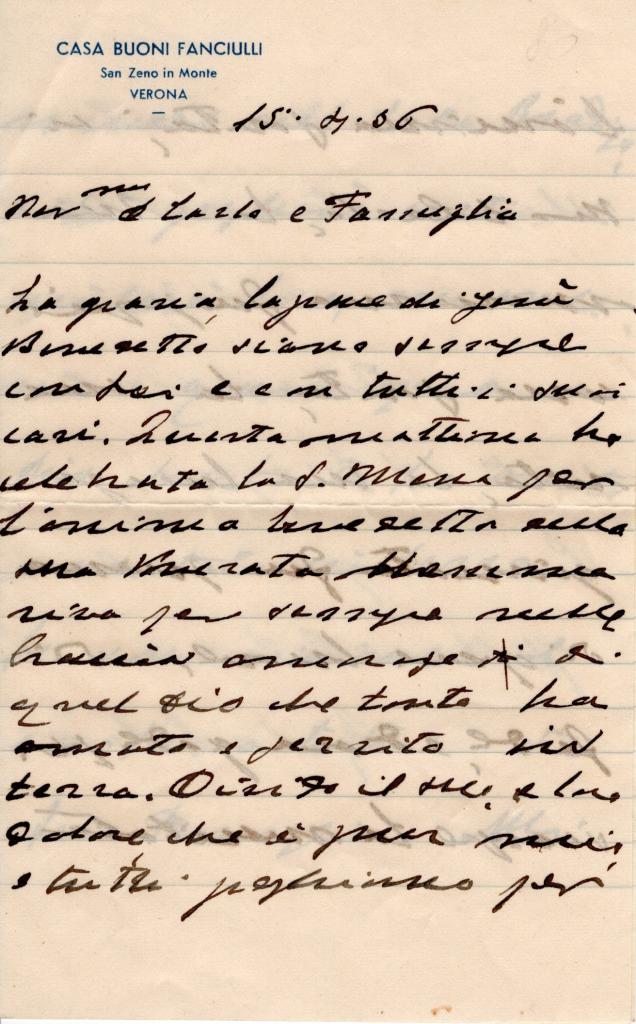 CASA BUONI FANCIULLI
San Zeno in Monte
VERONA
15. 4. 36
e Famiglia
La grazia, la pace di Gesù
Benedetto siano sempre
con Lei e con tutti i suoi
cari. Questa mattina ho
celebrata la S. Messa per
l'anima benedetta della
sua Venerata Mamma
viva per sempre nelle
braccia amorose di
quel Dio che tanto ha
amato e servito in
terra. Divido il suo, e loro
dolore che è pur mio,
e tutti preghiamo per